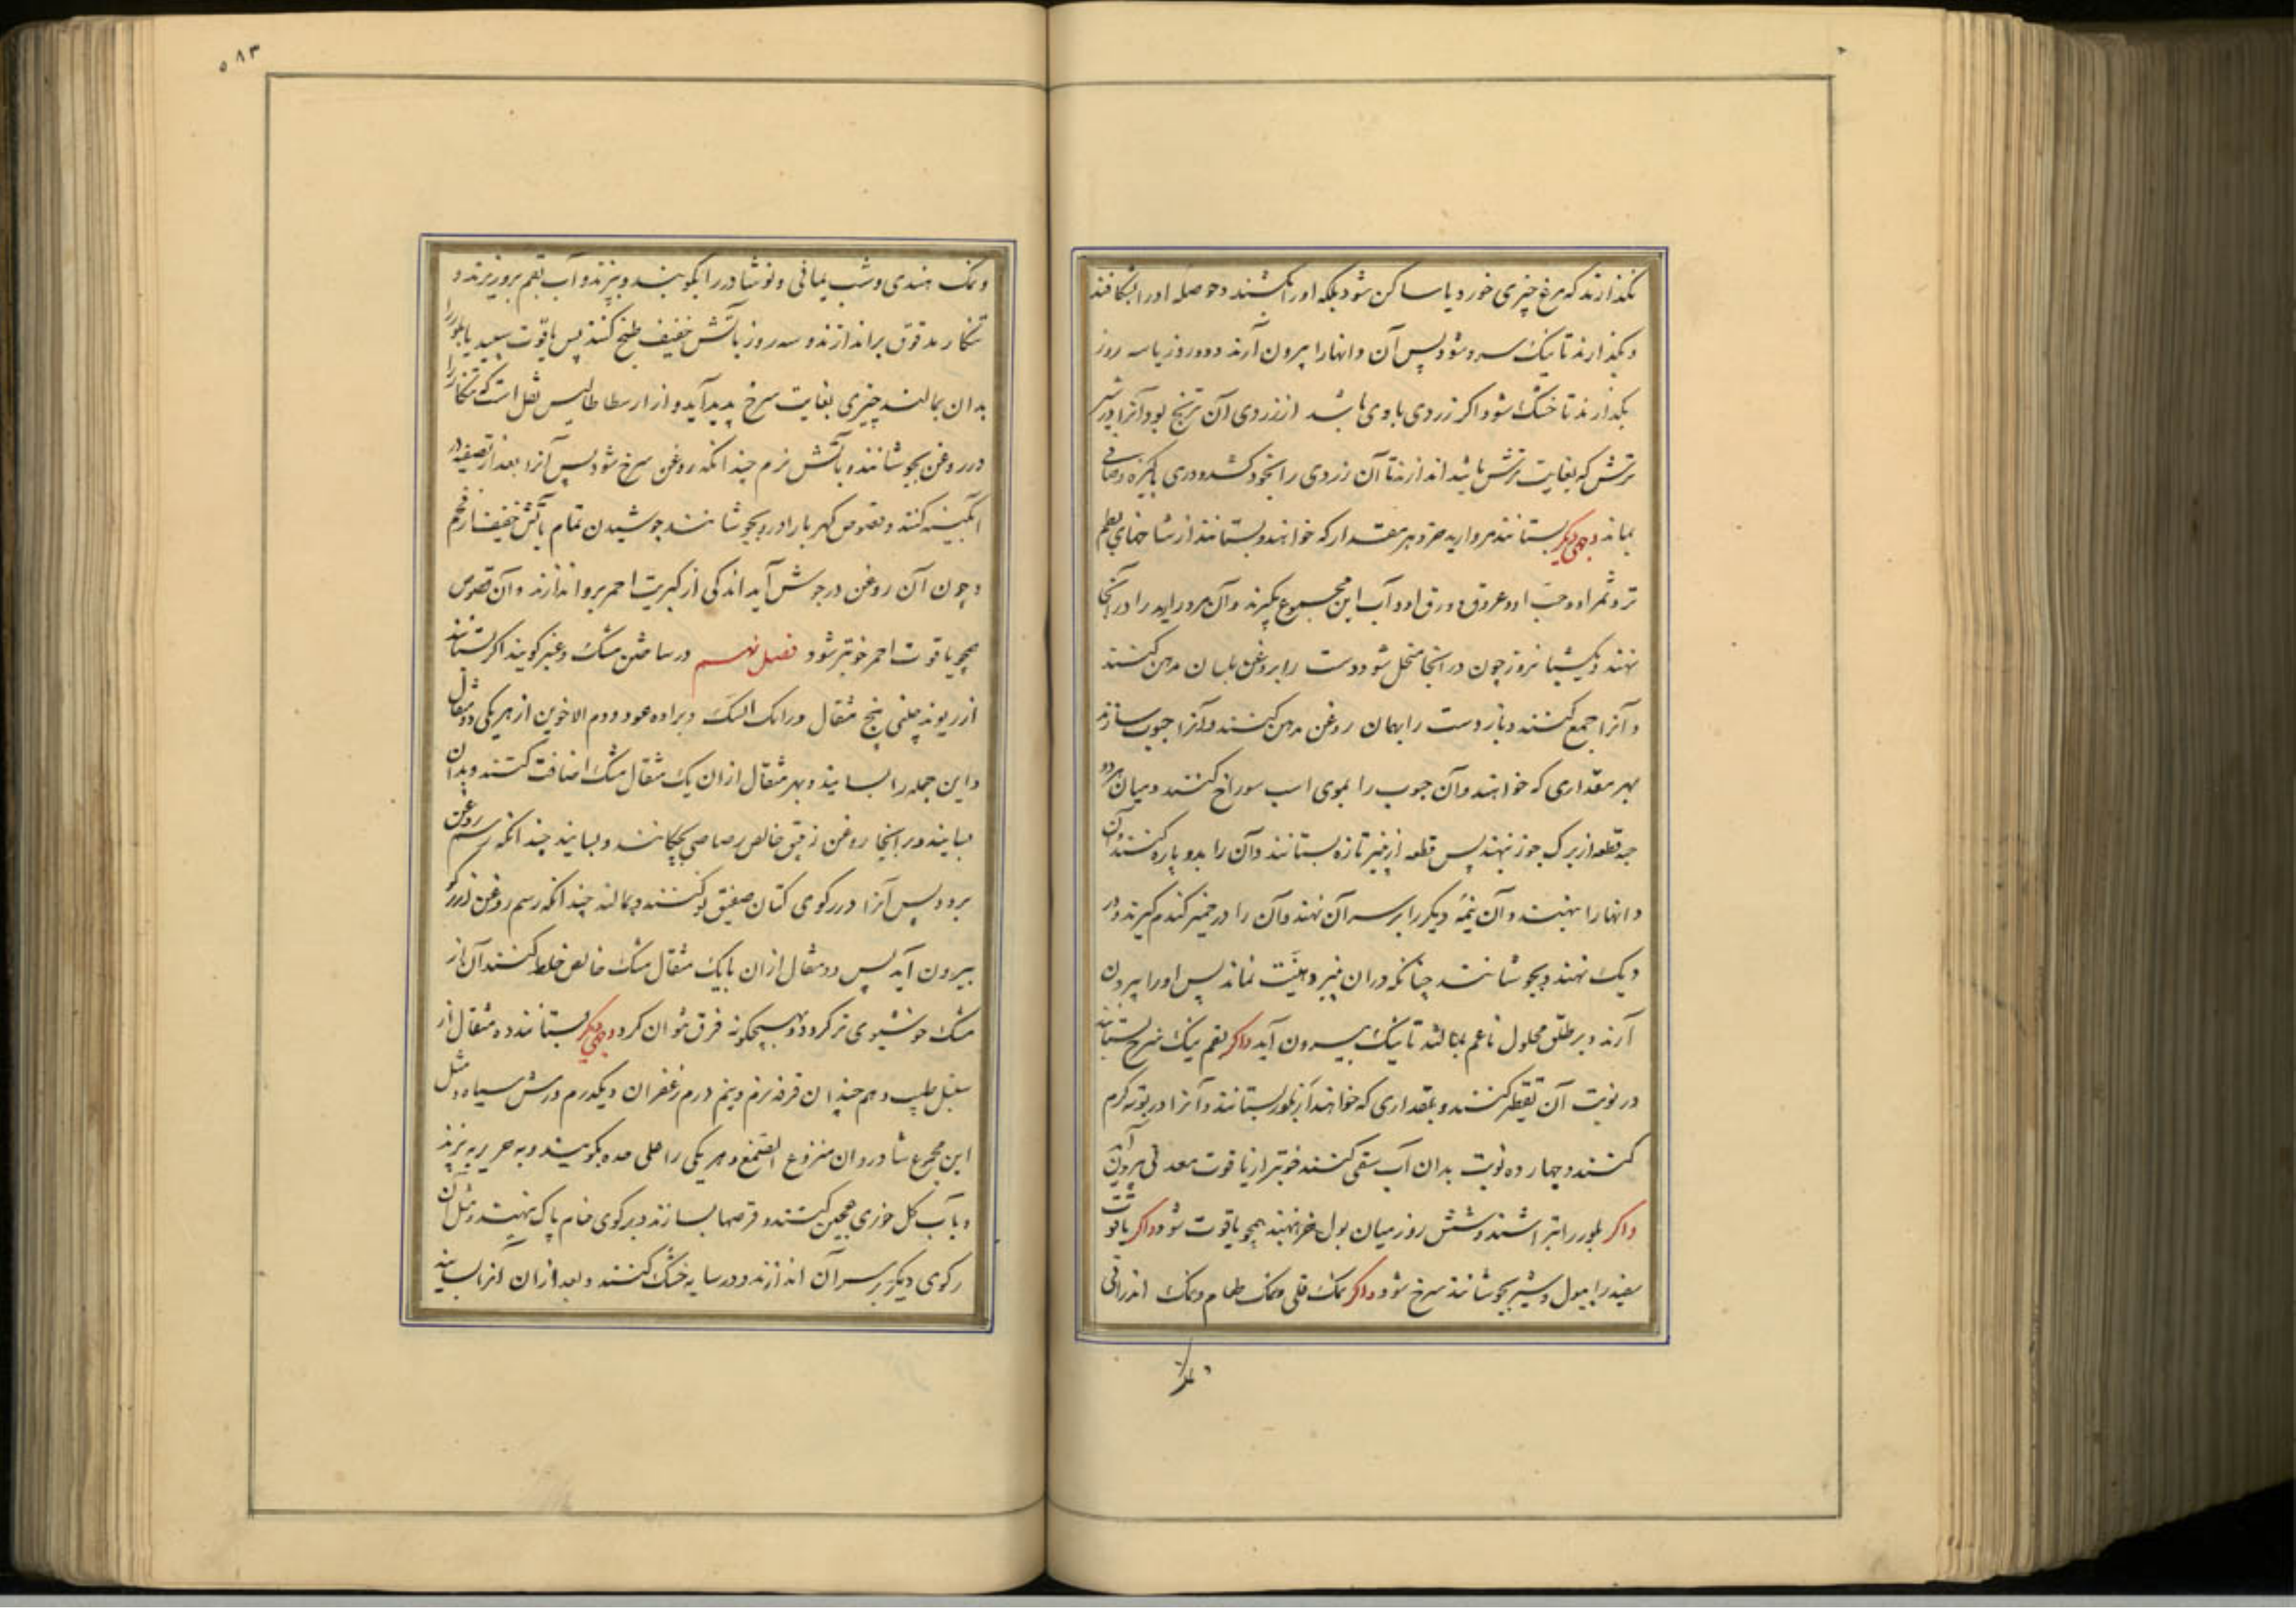 نکذارند که مرغ چیزی خورد یا ساکن شود بلکه او را بکشند و حوصله او را بشکافند
و بکذارند تا نیک سرد شود پس آن دانها را بیرون آرند و دو روز یا سه روز
بکذارند تا خشک شود و اکر زردی با وی باشد از زردی آن ترنج بود آنرا در شیر
ترش که بغایت ترش باشد اندازند تا آن زردی را بخود کشد و دری پاکیزه و صافی
بماند وجهی دیکر بستانند مروارید خرد هر مقدار که خواهند و بستانند از شاخهای
تر و ثمر او و حب او و عروق و ورق او و آب این مجموع بکیرند و آن مروارید را در آنجا
نهند و یکشبانروز چون در آنجا منحل شود دست را بروغن بلسان مدهن کنند
و آنرا جمع کنند و باز دست را بهمان روغن مدهن کنند و آنرا حبوب سازند
بهر مقداری که خواهند و آن حبوب را بموی اسب سوراخ کنند و میان هر دو
حبه قطعه از برک جوز نهند پس قطعه از پنیر تازه بستانند و آن را بدو پاره کنند و آن
دانها را بنهند و آن نیمه دیکر را بر سر آن نهند و آن را در خمیر کندم کیرند و در
دیک نهند و بجوشانند چنانکه در ان پنیر دهنیت نماند پس او را بیرون
آرند و بر طلق محلول ناعم بمالند تا نیک بیرون آید و اکر بقم نیک سرخ بستانند
در نوبت آن تقطیر کنند و بمقداری که خواهند از بلور بستانند و آنرا در بوته کرم
کنند و چهارده نوبت بدان آب سقی کنند خوبتر از یاقوت معدنی بیرون آید
و اکر بلور را بتراشند و شش روز میان بول خر نهند همچو یاقوت شود و اکر یاقوت
سفید را ببول و شیر بجوشانند سرخ شود و اکر نمک قلی و نمک طعام و نمک اندرانی
و نمک
۵۸۳
و نمک هندی و شب یمانی و نوشادر را بکوبند و ببیزند و آب بقم برو ریزند و
تنکار مدقوق بر اندازند و سه روز بآتش خفیف طبخ کنند پس یاقوت سپید یا بلور را
بدان بمالند چیزی بغایت سرخ پدید آید و از ارسطاطالیس نقل است که تنکار را
در روغن بجوشانند و بآتش نرم چندانکه روغن سرخ شود پس آنرا بعد از تصفیه در
آبکینه کنند و فصوص کهربا را در و بجوشانند جوشیدن تمام بآتش خفیف از فحم
و چون آن روغن در جوش آید اندکی از کبریت احمر برو اندازند و آن فصوص
همچو یاقوت احمر خوبتر شود فصل نهم در ساختن مشک و عنبر کویند اکر بستانند
از ریوند چینی پنج مثقال و رامک السک و براده عود و دم الاخوین از هر یکی دو مثقال
و این جمله را بسایند و بهر مثقال از ان یک مثقال مشک اضافت کنند و بدان
بسایند و بر اینجا روغن زیبق خالص رصاصی بچکانند و بسایند چندانکه رسم روغن
برود پس آنرا در رکوی کتان صفیق نو کنند و بمالند چندانکه رسم روغن از رکو
بیرون آید پس دو مثقال از ان با یک مثقال مشک خالص خلط کنند آن از
مشک خوشبوی تر کردد و بهیچکونه فرق نتوان کرد وجهی دیکر بستانند ده مثقال از
سنبل طیب و هم چندان قرفه نرم و نیم درم زعفران و یکدرم ورس سیاه و مثل
این مجموع شادروان منزوع الصمغ و هر یکی را علی حده بکوبند و به حریر بیزند
و بآب کل خوری عجین کنند و قرصها بسازند و بر رکوی خام پاک نهند و مثل آن
رکوی دیکر بر سر آن اندازند و در سایه خشک کنند و بعد از ان آنرا بسایند